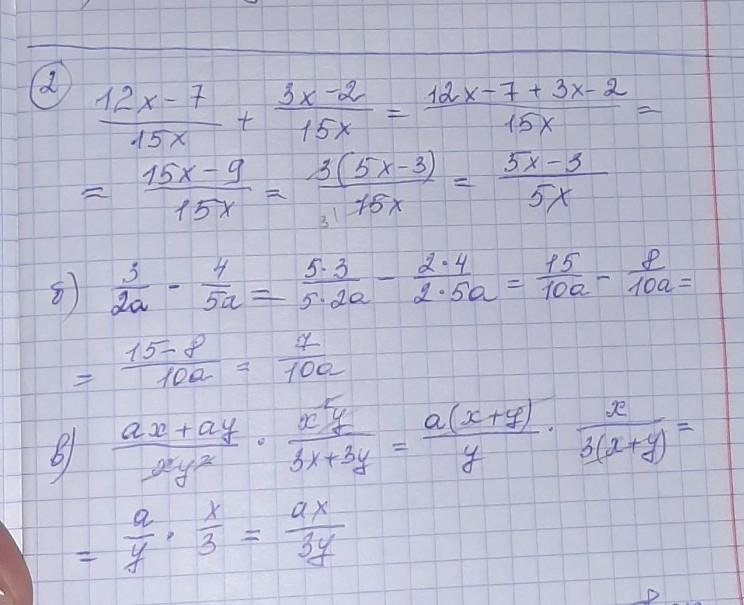 2 (12x-7)/15x + (3x-2)/15x = (12x-7+3x-2)/15x =
= (15x-9)/15x = 3(5x-3)/15x = (5x-3)/5x
б) 3/2a - 4/5a = 5·3/5·2a - 2·4/2·5a = 15/10a - 8/10a =
= (15-8)/10a = 7/10a
в) (ax+ay)/xy² · x²y/(3x+3y) = a(x+y)/y · x/3(x+y) =
= a/y · x/3 = ax/3y